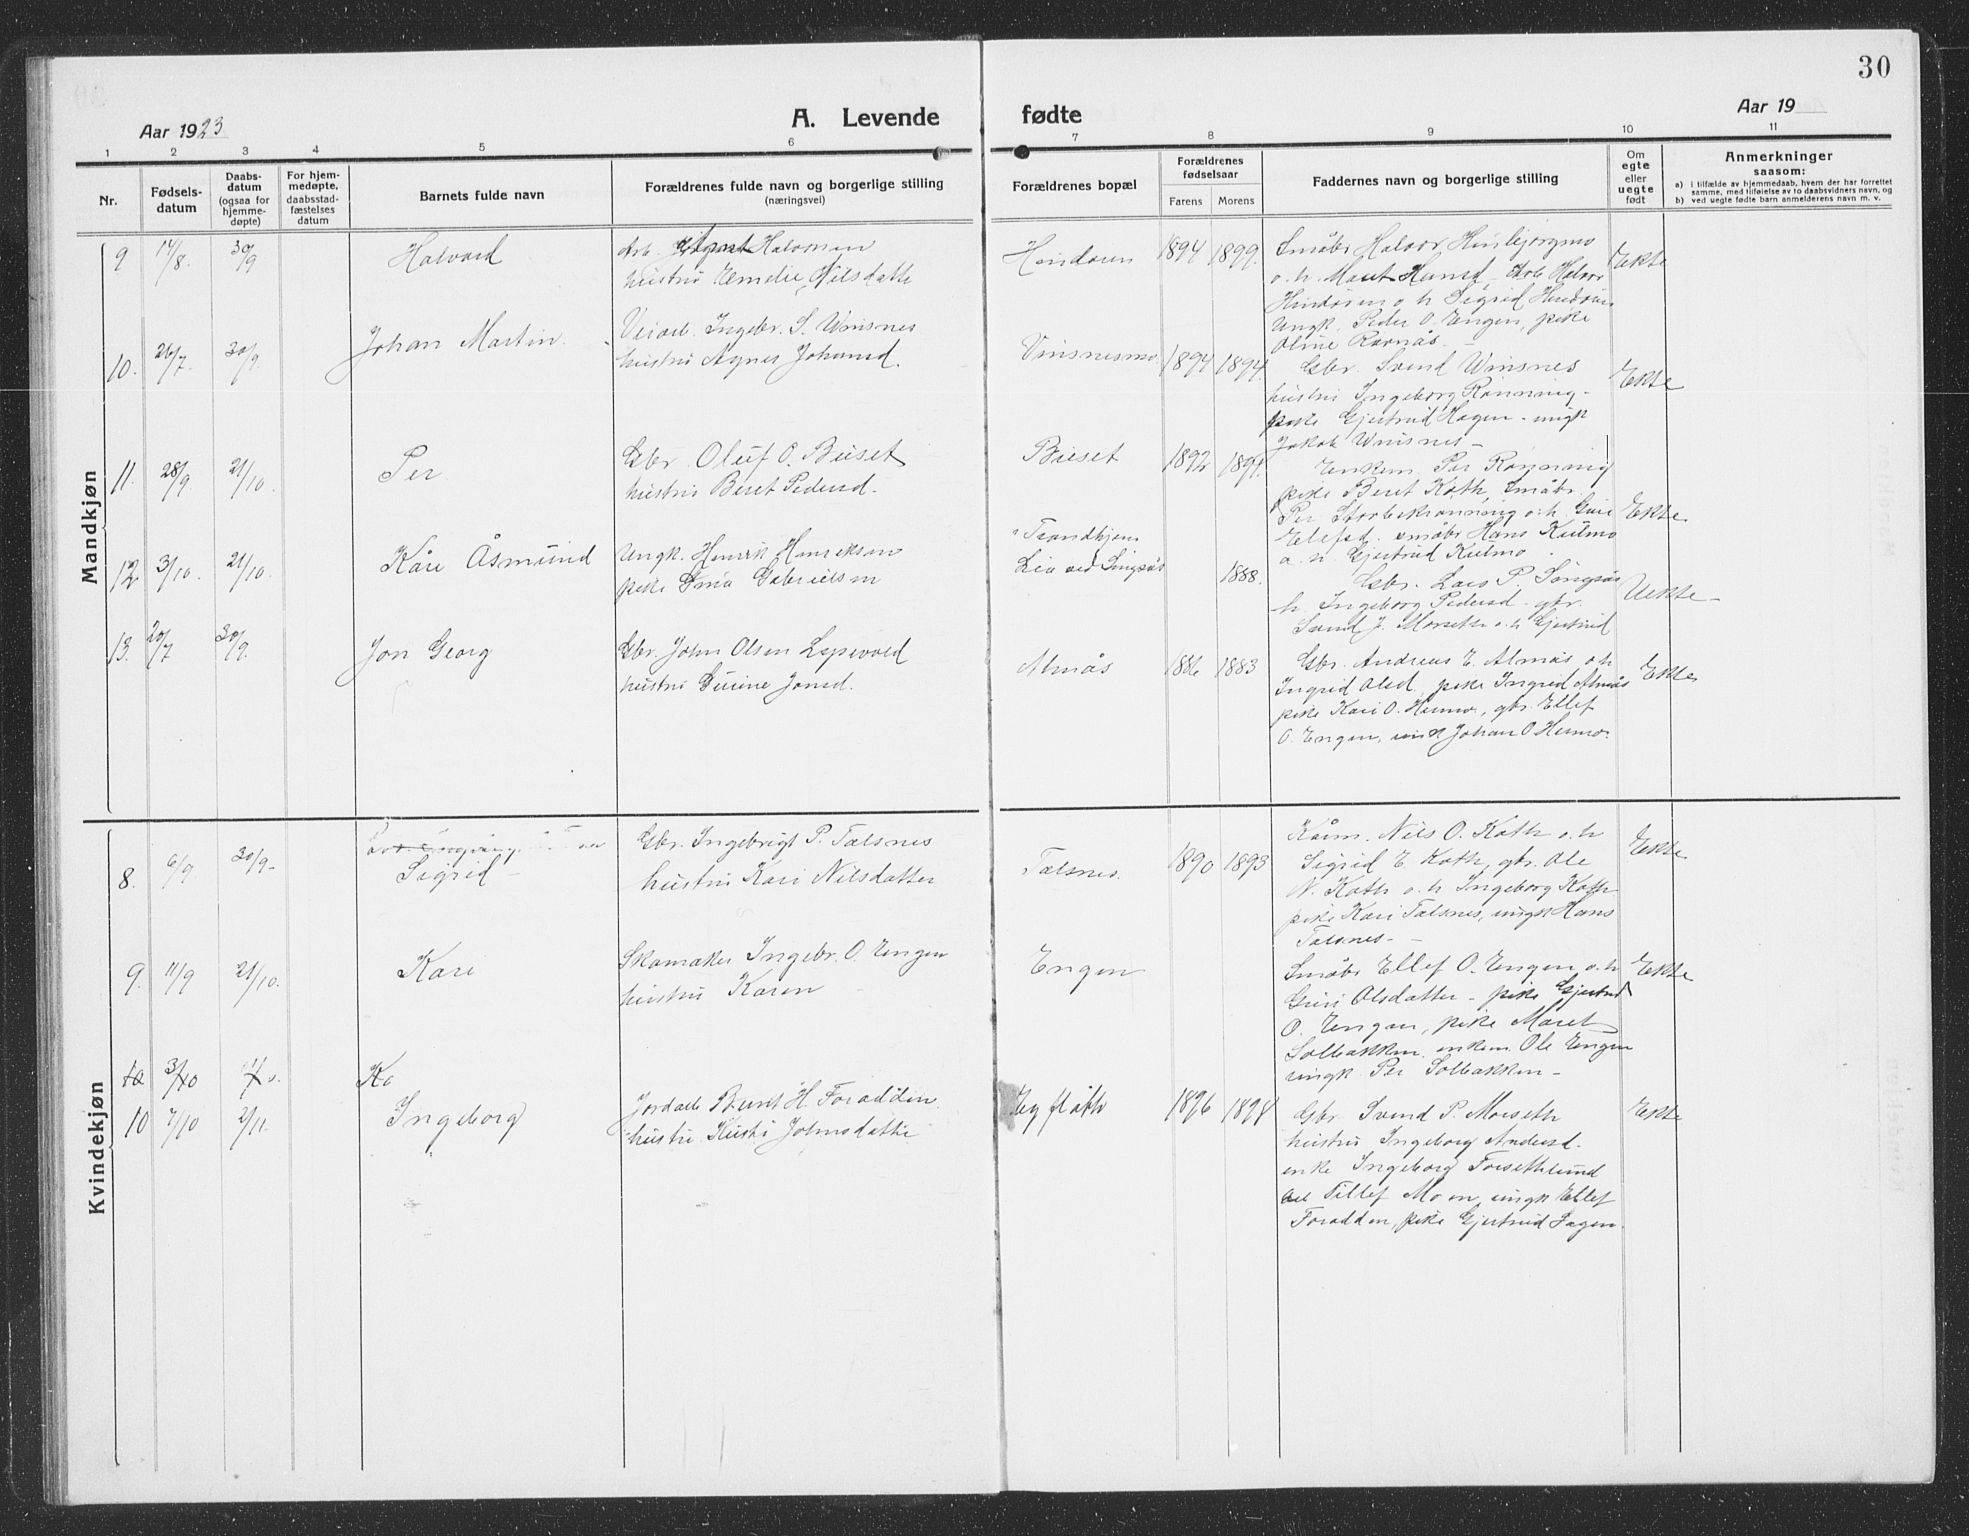 30
Aar 1923
A. Levende
fødte
Aar 19
1 2 3 4 5 6
7 8 9 10 11
Nr.
Fødsels-
datum
Daabs-
datum
(ogsaa for
hjemme-
døpte)
For hjem-
medøpte,
daabsstad-
fæstelses
datum
Barnets fulde navn
Forældrenes fulde navn og borgerlige stilling
(næringsvei)
Forældrenes bopæl
Forældrenes
fødselsaar
Farens Morens
Faddernes navn og borgerlige stilling
Om
egte
eller
uegte
født
Anmerkninger
saasom:
a) i tilfælde av hjemmedaab, hvem der har forrettet
samme, med tilføielse av to daabsvidners navn, og
b) ved uegte fødte barn anmelderens navn m. v.
Mandkjøn
9 14/8. 30/9 Halvard
Arb. Halvorsen
hustru Emelie Nilsdatte
Hindoren 1894 1899.
Småbr Halvor Hinbjørgmo
o. h. Marit Hansd - Arb Halvor
Hindoren o h Sigrid Hindoren
Ungk. Peder O. Engen, pike
Oline Ramås -
Ekte
10. 26/7. 30/9. Johan Martin
Veiarb. Ingebr. S. Winsnes
hustru Agnes Johansd.
Vinsnesmo 1894 1894.
Gbr. Svend Winsnes
hustru Ingeborg Rønning -
pike Gjertrud Hagen - ungk
Jakob Winsnes -
Ekte
11. 28/9. 21/10. Per
Gbr. Oluf O. Buset
hustru Beret Pedersd.
Buset 1892 1897.
Enkem. Per Rønning
pike Beret Koth, småbr.
Per Storbekrønning o. h. Guri
Elefsd. småbr Hans Kulmo
o. h. Gjertrud Kulmo.
Ekte
12 3/10. 21/10. Kåre Åsmund
Ungk. Henrik Henriksen
pike Gina Gabrielsen
Trondhjem
Lien ved Singsås 1888.
Gbr. Lars P. Singsås
h. Ingeborg Pedersd - gbr.
Svend J. Morseth o. h Gjertrud
Uekte -
13. 20/7 30/9. Jon Georg
Gbr. John Olsen
hustru Guine Jonsd.
Almås 1886 1883
Gbr. Andreas E. Almås o h
Ingrid Olsd, pike Ingrid Almås
pike Kari O. Hermo, gbr. Ellef
O. Engen, ungk Johan O Hermo.
Ekte
Kvindekjøn
8. 6/9 30/9- Sigrid -
Gbr. Ingebrigt P. Talsnes
hustru Kari Nilsdatter
Talsnes. 1890 1893
Kåim. Nils O. Koth o. h
Sigrid E Koth, gbr. Ole
N. Koth o. h Ingeborg Koth
pike Kari Talsnes, ungk Hans
Talsnes -
Ekte
9. 11/9 21/10. Kari
Skomaker Ingebr. O. Engen
hustru Karen
Engen
Småbr Ellef O. Engen o. h
Guri Olsdatter - pike Gjertrud
O. Engen, pike Maret
Solbakken, enkem. Ole Engen
ungk. Per Solbakken -
Ekte
10 3/10 Ka
10 7/10 2/11. Ingeborg
Jordarb Bernt H. Foradden
hustru Kirsti Johnsdatter
1896 1898
Gbr. Svend P. Morseth
hustru Ingeborg Andersd.
enke Ingeborg Forsethlund
arb Tillef Moen, ungk Ellef
Foradden, pike Gjertrud Hagen.
Ekte